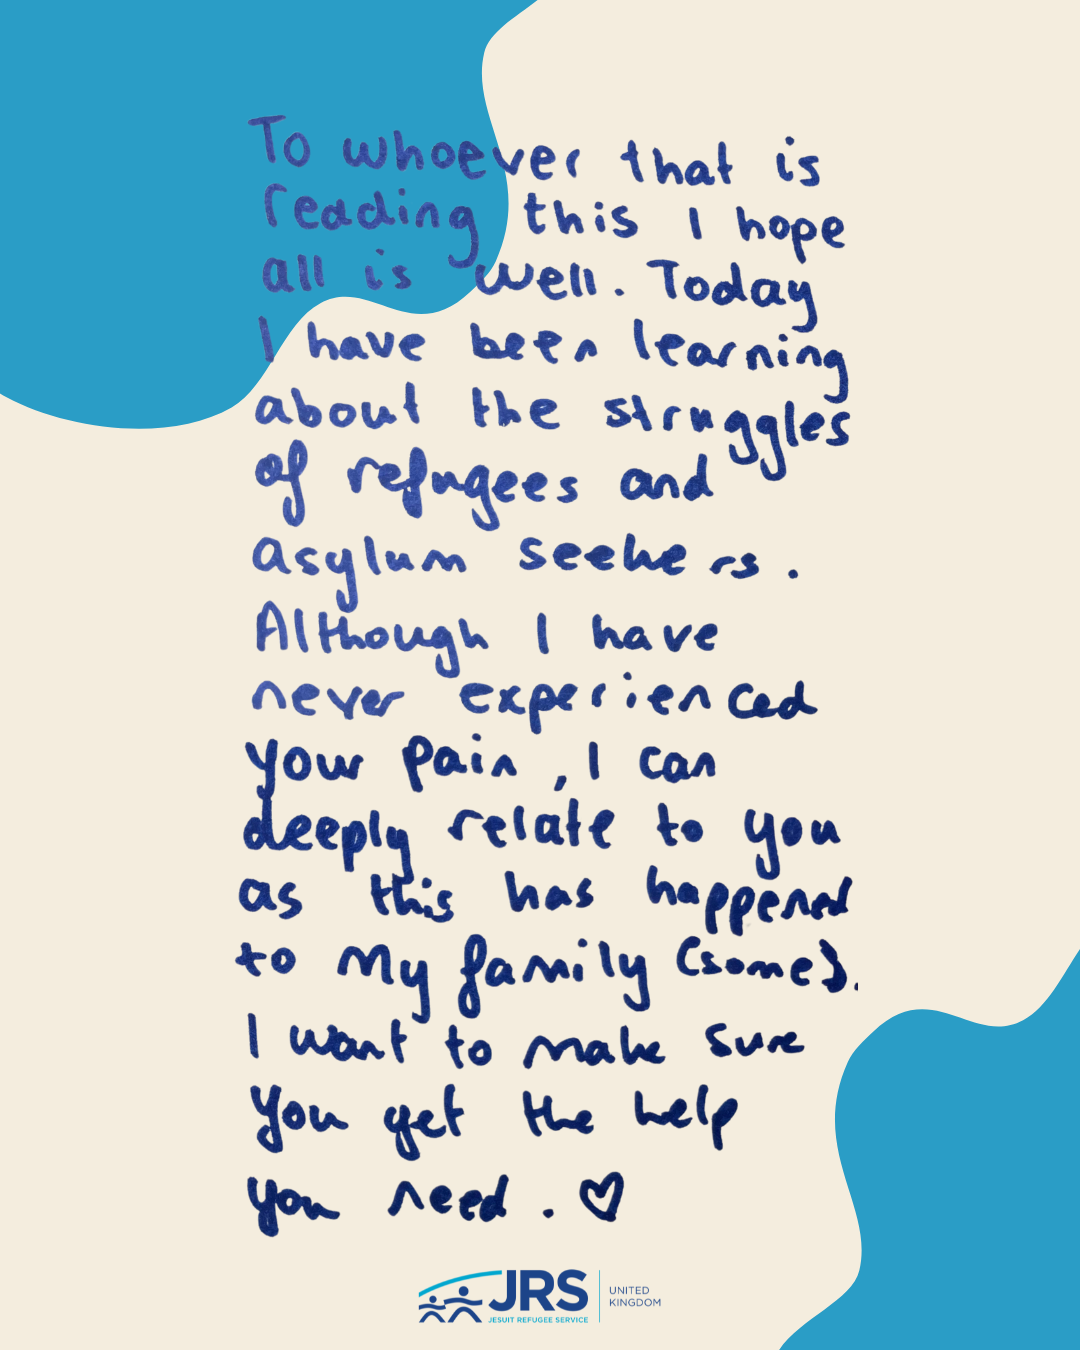 To whoever that is
reading this I hope
all is well. Today
I have been learning
about the struggles
of refugees and
asylum seekers.
Although I have
never experienced
your pain, I can
deeply relate to you
as this has happened
to my family (some).
I want to make sure
you get the help
you need. ♡
JRS
JESUIT REFUGEE SERVICE
UNITED
KINGDOM